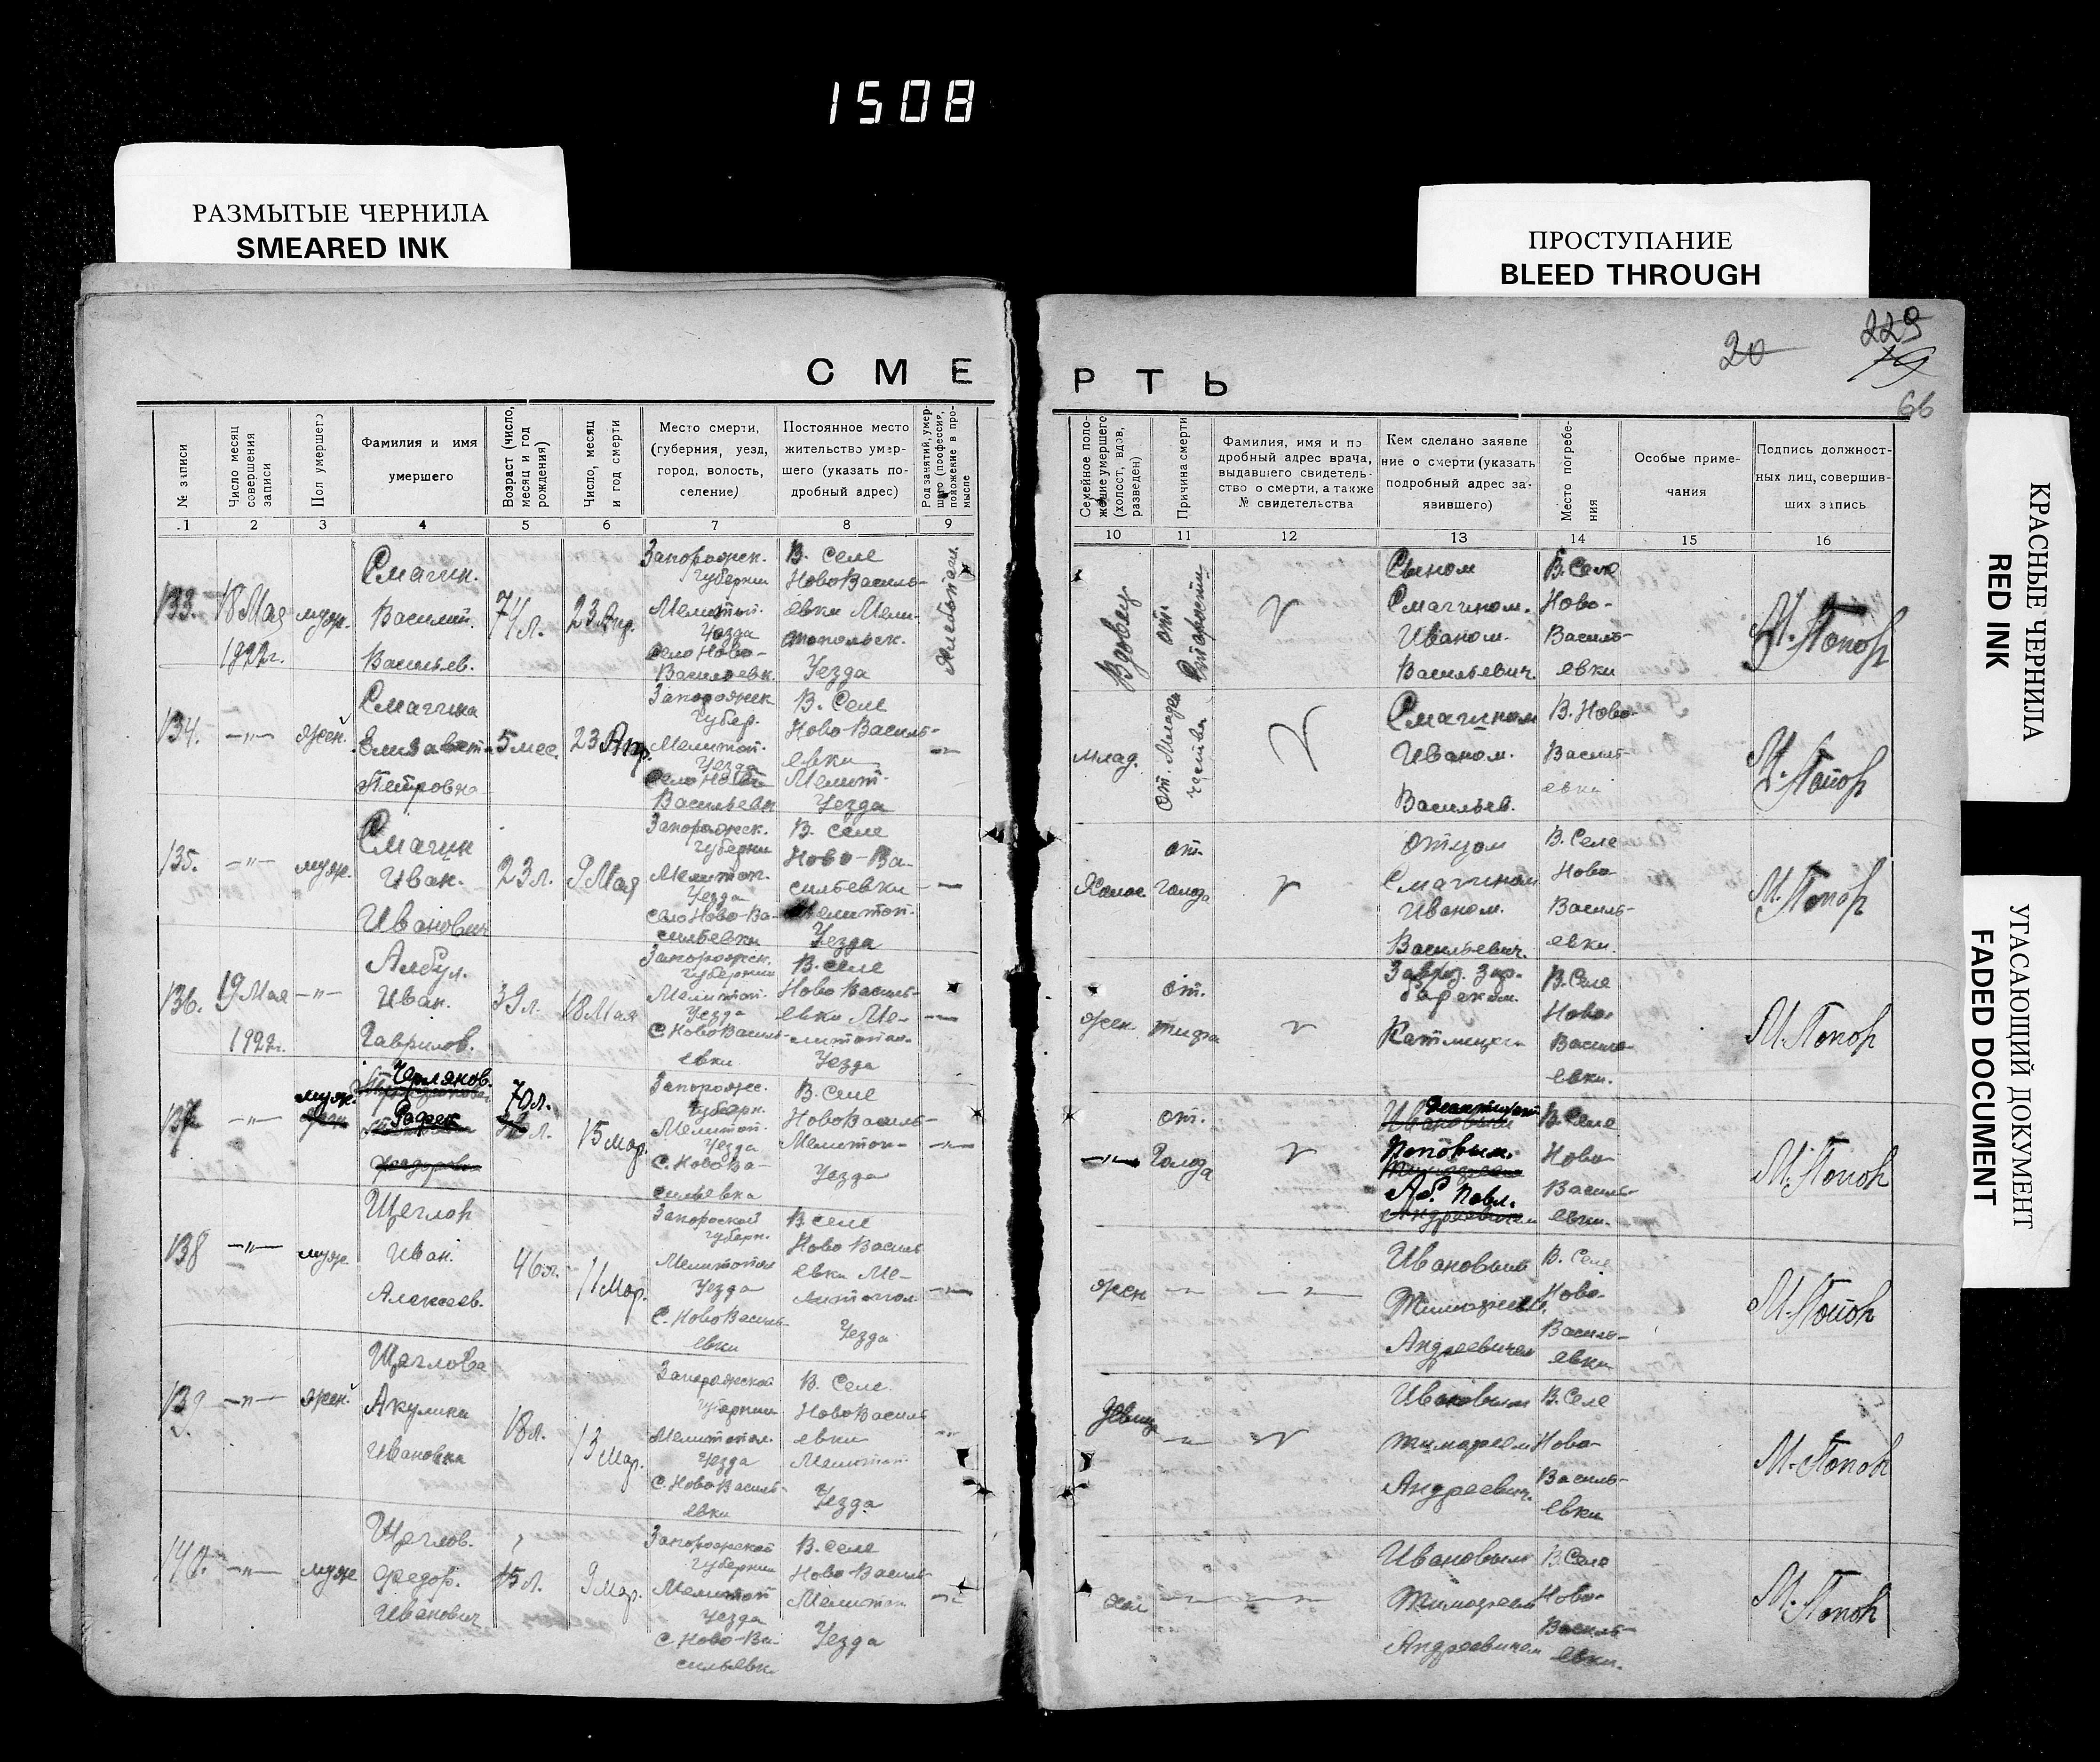 1508
РАЗМЫТЫЕ ЧЕРНИЛА
SMEARED INK
ПРОСТУПАНИЕ
BLEED THROUGH
КРАСНЫЕ ЧЕРНИЛА
RED INK
УГАСАЮЩИЙ ДОКУМЕНТ
FADED DOCUMENT
20
229
19
66
СМЕ
РТЬ
№ записи
Число месяц
совершения
записи
Пол умершего
Фамилия и имя
умершего
Возраст (число,
месяц и год
рождения)
Число, месяц
и год смерти
Место смерти,
(губерния, уезд,
город, волость,
селение)
Постоянное место
жительство умер-
шего (указать по-
дробный адрес)
Род занятий, умер-
шего (профессия,
положение в про-
мысле
1 2 3 4 5 6 7 8 9
Семейное поло-
жение умершего
(холост, вдов,
разведен)
Причина смерти
Фамилия, имя и по
дробный адрес врача,
выдавшего свидетель-
ство о смерти, а также
№ свидетельства
Кем сделано заявле
ние о смерти (указать
подробный адрес за-
явившего)
Место погребе-
ния
Особые приме-
чания
Подпись должност-
ных лиц, совершив-
ших запись
10 11 12 13 14 15 16
133.
18 Мая
1922г.
муж.
Смагин.
Василий.
Васильев.
71л.
23 Апр.
Запорожск.
Губернии
Мелитоп.
Уезда
село Ново-
Васильевк.
В. Селе
НовоВасиль-
евки Мели-
топольск.
Уезда
Вдовец
от
Старости
Сыном
Смагином.
Иваном.
Васильевич.
В. Селе
Ново-
Василь-
евки
М. Попов
134.
—"—
жен.
Смагина
Елизавет.
Петровна
5 мес.
23 Апр.
Запорожск
Губер.
Мелитоп.
Уезда
село Ново
Васильевк
В. Селе
Ново Василь-
евки
Мелит.
Уезда
млад.
от. Младен
чества
Смагином
Иваном.
Васильев.
В. Ново-
Василь-
евки
М. Попов
135.
—"—
муж.
Смагин
Иван.
Иванович
23л.
9 Мая
Запорожск.
Губернии
Мелитоп.
Уезда
село Ново-Ва-
сильевки
В. Селе
Ново-Ва-
сильевки
Мелитоп.
Уезда
от.
голода
отцом
Смагином
Иваном.
Васильевич.
В. Селе
Ново
Василь-
евки.
М. Попов
136.
19 Мая
1922г.
—"—
Албул.
Иван.
Гаврилов.
39л.
18 Мая
Запорожск.
Губернии
Мелитоп.
Уезда
С. НовоВасиль-
евки
В. селе
Ново Василь-
евки Ме-
литопол.
Уезда
жен.
от.
тифа
В. Селе
Ново-
Василь-
евки.
М. Попов
137
—"—
муж.
Черляков.
70л.
15 Мар.
Запорожс.
Губерн.
Мелитоп.
Уезда
С. Ново Ва-
сильевка
В. Селе
Ново Василь-
Мелитоп-
Уезда
—"—
от.
Голода
Поповым.
Аб. Павл.
В. Селе
Ново-
Василь-
евки.
М. Попов
138
—"—
муж
Щеглов
Иван.
Алексеев.
46л.
11 Мар.
Запорожской
Губерн.
Мелитопол
Уезда
С. НовоВасиль-
евки
В селе
Ново Василь
евки Ме-
литопол
Уезда
жен
Ивановым
Тимофеем.
Андреевичем
В. Селе
Ново-
Василь-
евки
М. Попов
139
—"—
жен.
Щеглова
Акулина
Ивановна
18л.
13 Мар.
Запорожской
Губернии
Мелитопол.
Уезда
С. НовоВасиль-
евки
В. Селе.
Ново Василь
евки
Мелитоп.
Уезда
Девица
Ивановым
Тимофеем
Андреевич.
В. Селе
Ново-
Василь-
евки
М. Попов
140.
—"—
муж
Щеглов.
Федор.
Иванович
15л.
9 Мар.
Запорожской
Губернии
Мелитоп
Уезда
С. Ново-Ва-
сильевк.
В. селе
Ново Василь
Мелитоп
Уезда
хол
Ивановым
Тимофеем
Андреевичем
В. Селе
Ново-
Василь-
евки.
М. Попов